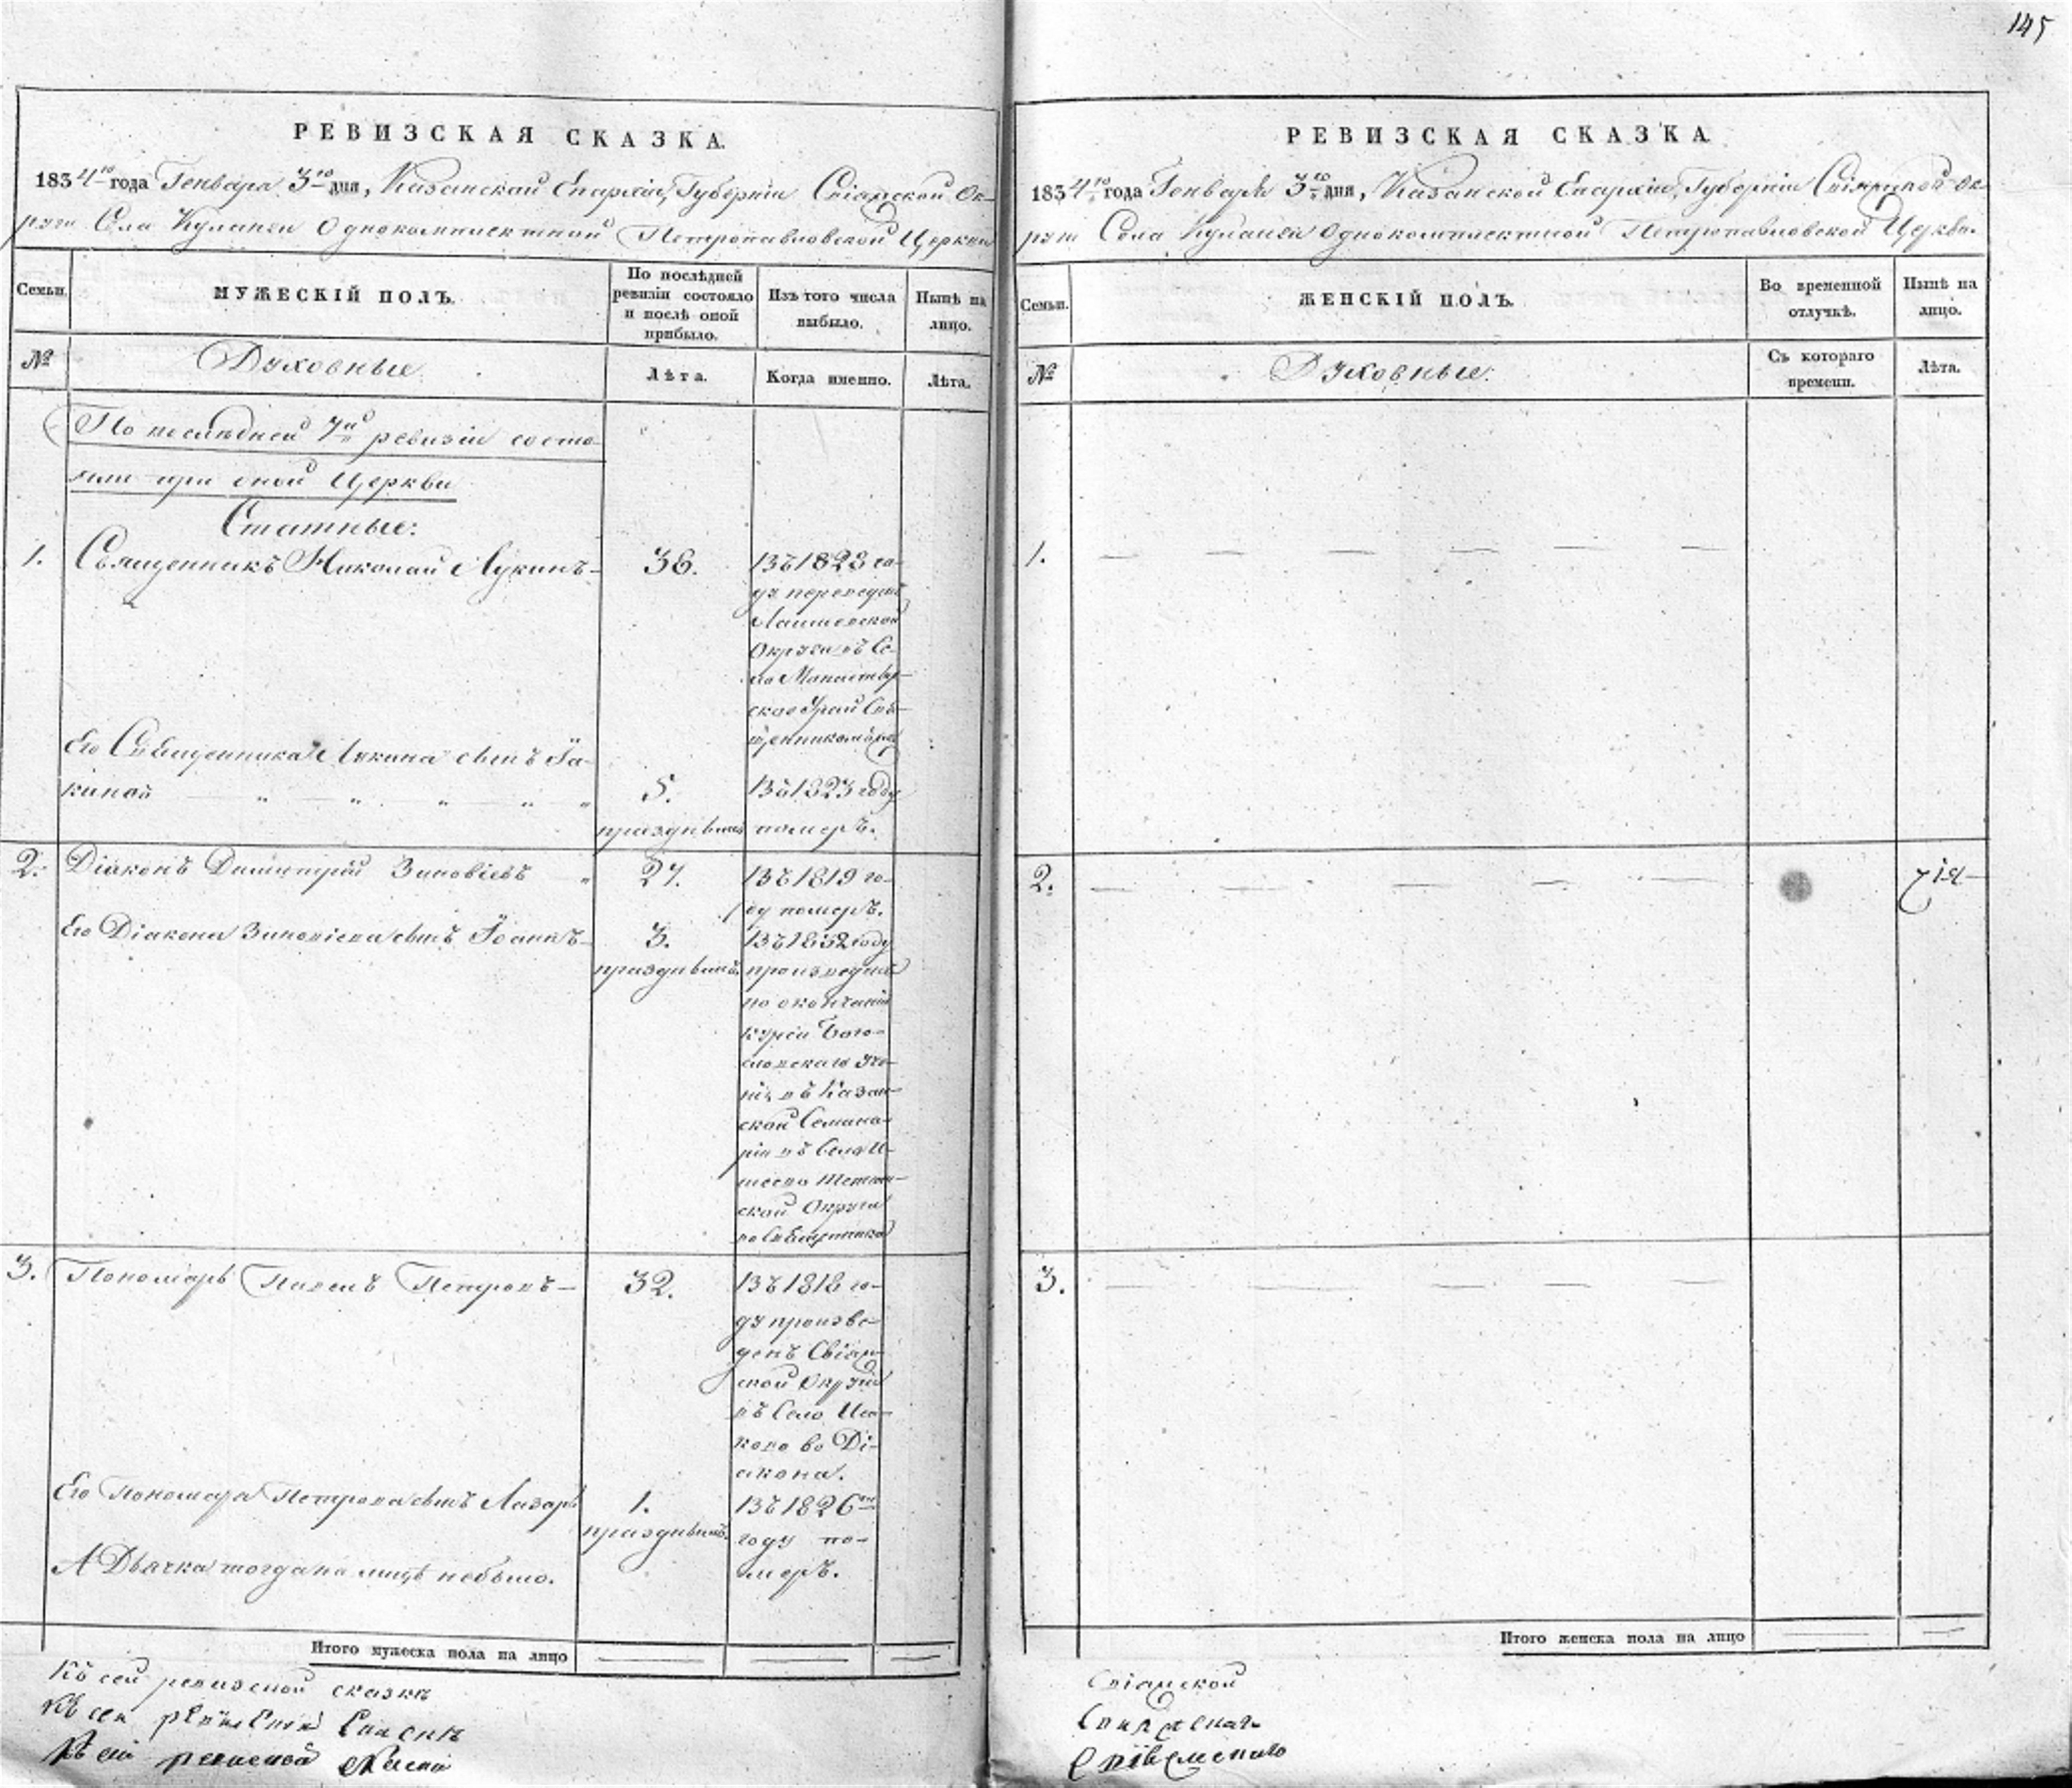 145
РЕВИЗСКАЯ СКАЗКА.
1834го года Генваря 3го дня, Казанской Епархіи, Губерніи Свіяжской Ок-
руги Села Куланги Однокомплектной Петропавловской Церкви
Семьи.
МУЖЕСКІЙ ПОЛЪ.
По послѣдней
ревизіи состояло
и послѣ оной
прибыло.
Изъ того числа
выбыло.
Нынѣ на
лицо.
№
Духовные
Лѣта.
Когда именно.
Лѣта.
По последней 7й ревизіи состо-
яли при оной Церкви
Статные:
1.
Священникъ Николай Лукинъ-
36.
Въ 1823 го-
ду переведенъ
Лаишевской
Округи въ Се-
ло
ское Урай Свя-
щенникомъ
Его Священника Лукина сынъ Іа-
кинѳъ
5.
праздный
Въ 1823 году
померъ.
2.
Діаконъ Димитрій Зиновіевъ
27.
Въ 1819 го-
ду померъ.
Его Діакона Зиновіева сынъ Іоаннъ-
3.
праздный
Въ 1832 году
произведенъ
по окончаніи
курса Бого-
словскаго уче-
нія въ Казан-
ской Семина-
ріи въ Село И-
шеево Тетюш-
ской Округи
во Священника
3.
Пономарь Павелъ Петровъ-
32.
Въ 1818 го-
ду произве-
денъ Свіяж-
ской Округи
въ Село Иса-
ково во Ді-
акона.
Его Пономаря Петрова сынъ Лазарь
1.
праздный
Въ 1826м
году по-
меръ.
А Дьячка тогда на лицѣ небыло.
Итого мужеска пола на лицо
Къ сей ревизской сказкѣ
Къ сей ревизской сказкѣ
Къ сей ревизской сказкѣ
РЕВИЗСКАЯ СКАЗКА.
1834го года Генваря 3го дня, Казанской Епархіи, Губерніи Свіяжской Ок-
руги Села Куланги Однокомплектной Петропавловской Церкви.
Семьи.
ЖЕНСКІЙ ПОЛЪ.
Во временной
отлучкѣ.
Нынѣ на
лицо.
№
Духовные.
Съ котораго
времени.
Лѣта.
1.
2.
3.
Итого женска пола на лицо
Свіяжской